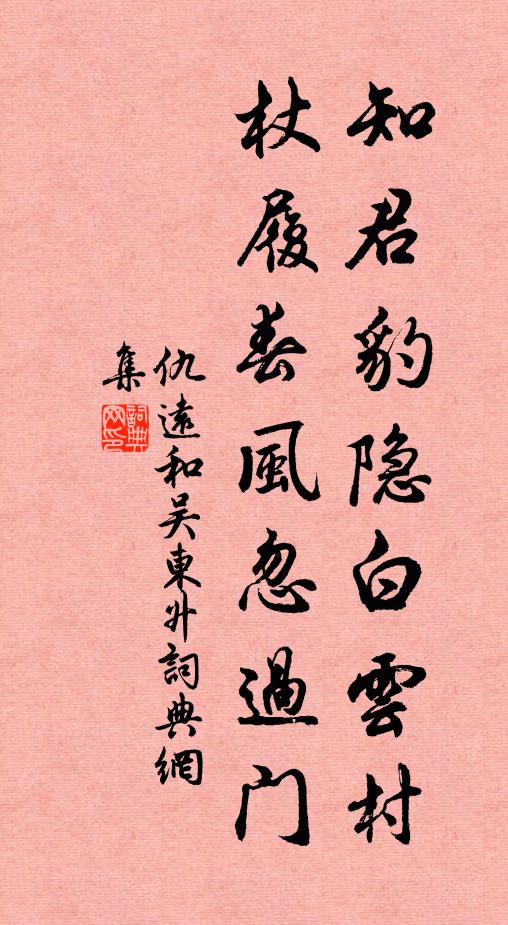 知君豹隐白雲村
杖履春風忽過门
仇遠和吴東升詞典網
集
詞典
网印